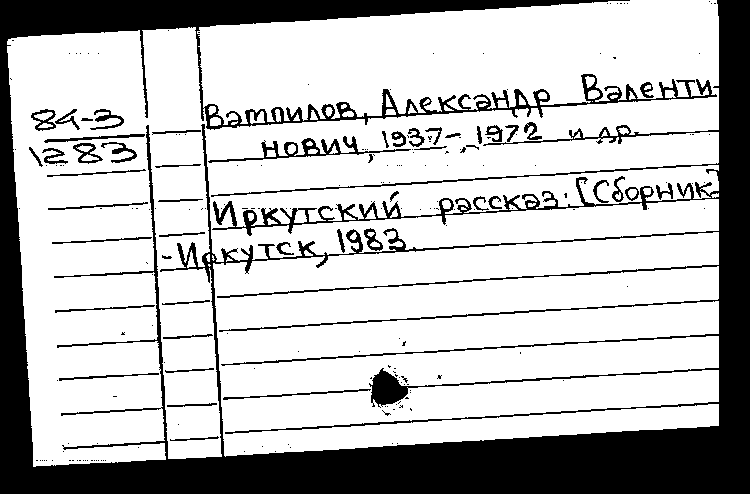 84-3
1283
Вампилов, Александр Валенти-
нович, 1937-, 1972 и др.
Иркутский рассказ: [Сборник]
-Иркутск, 1983.